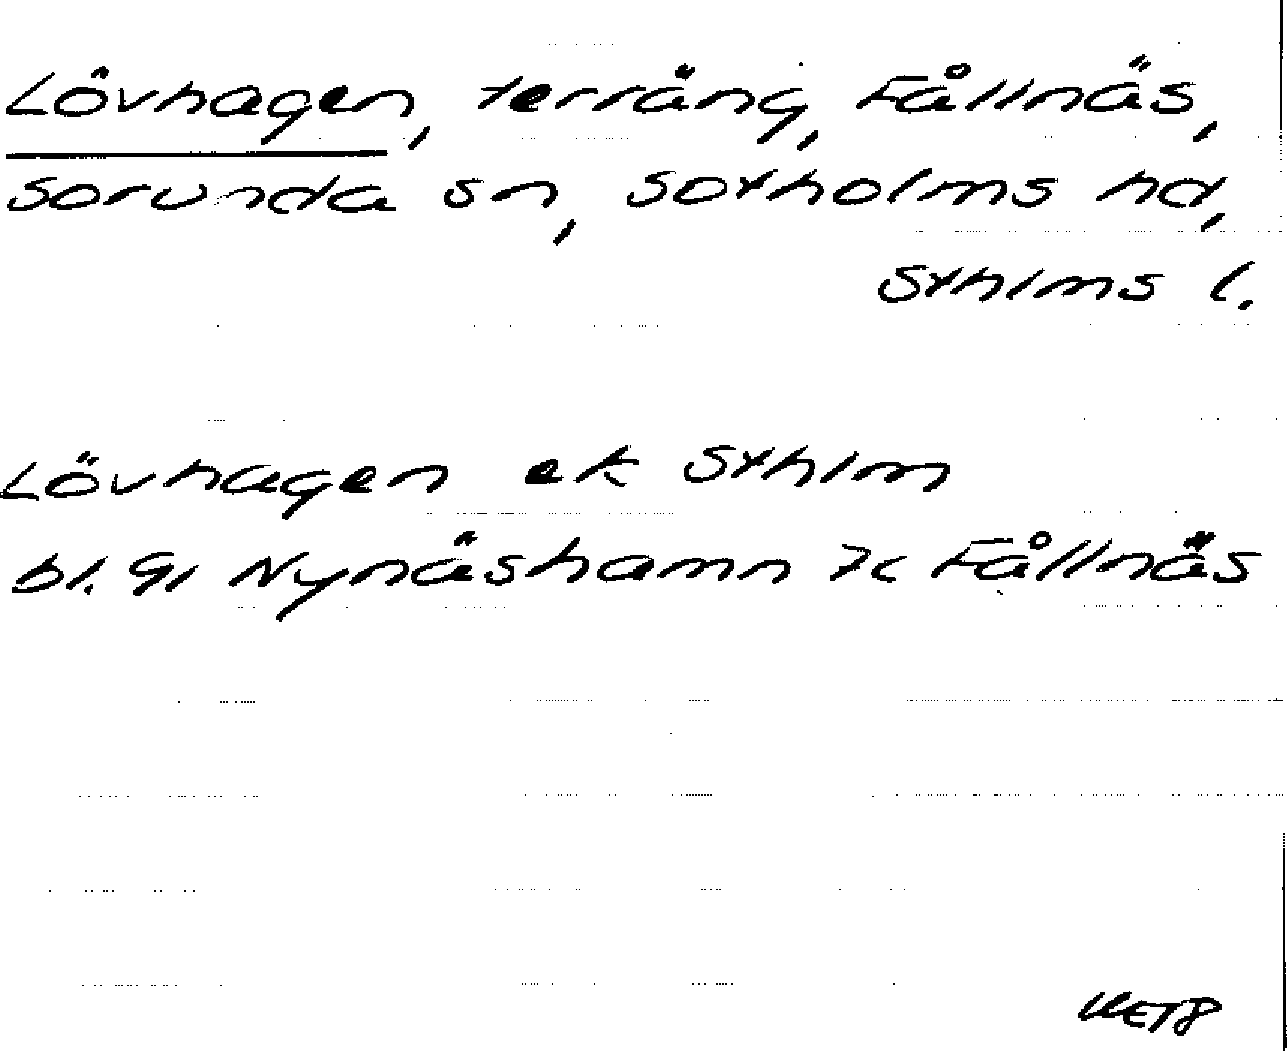 Lövhagen, terräng, Fållnäs,
Sorunda sn, Sotholms hd,
Sthlms l.
Lövhagen ek Sthlm
bl. 91 Nynäshamn 7c Fållnäs